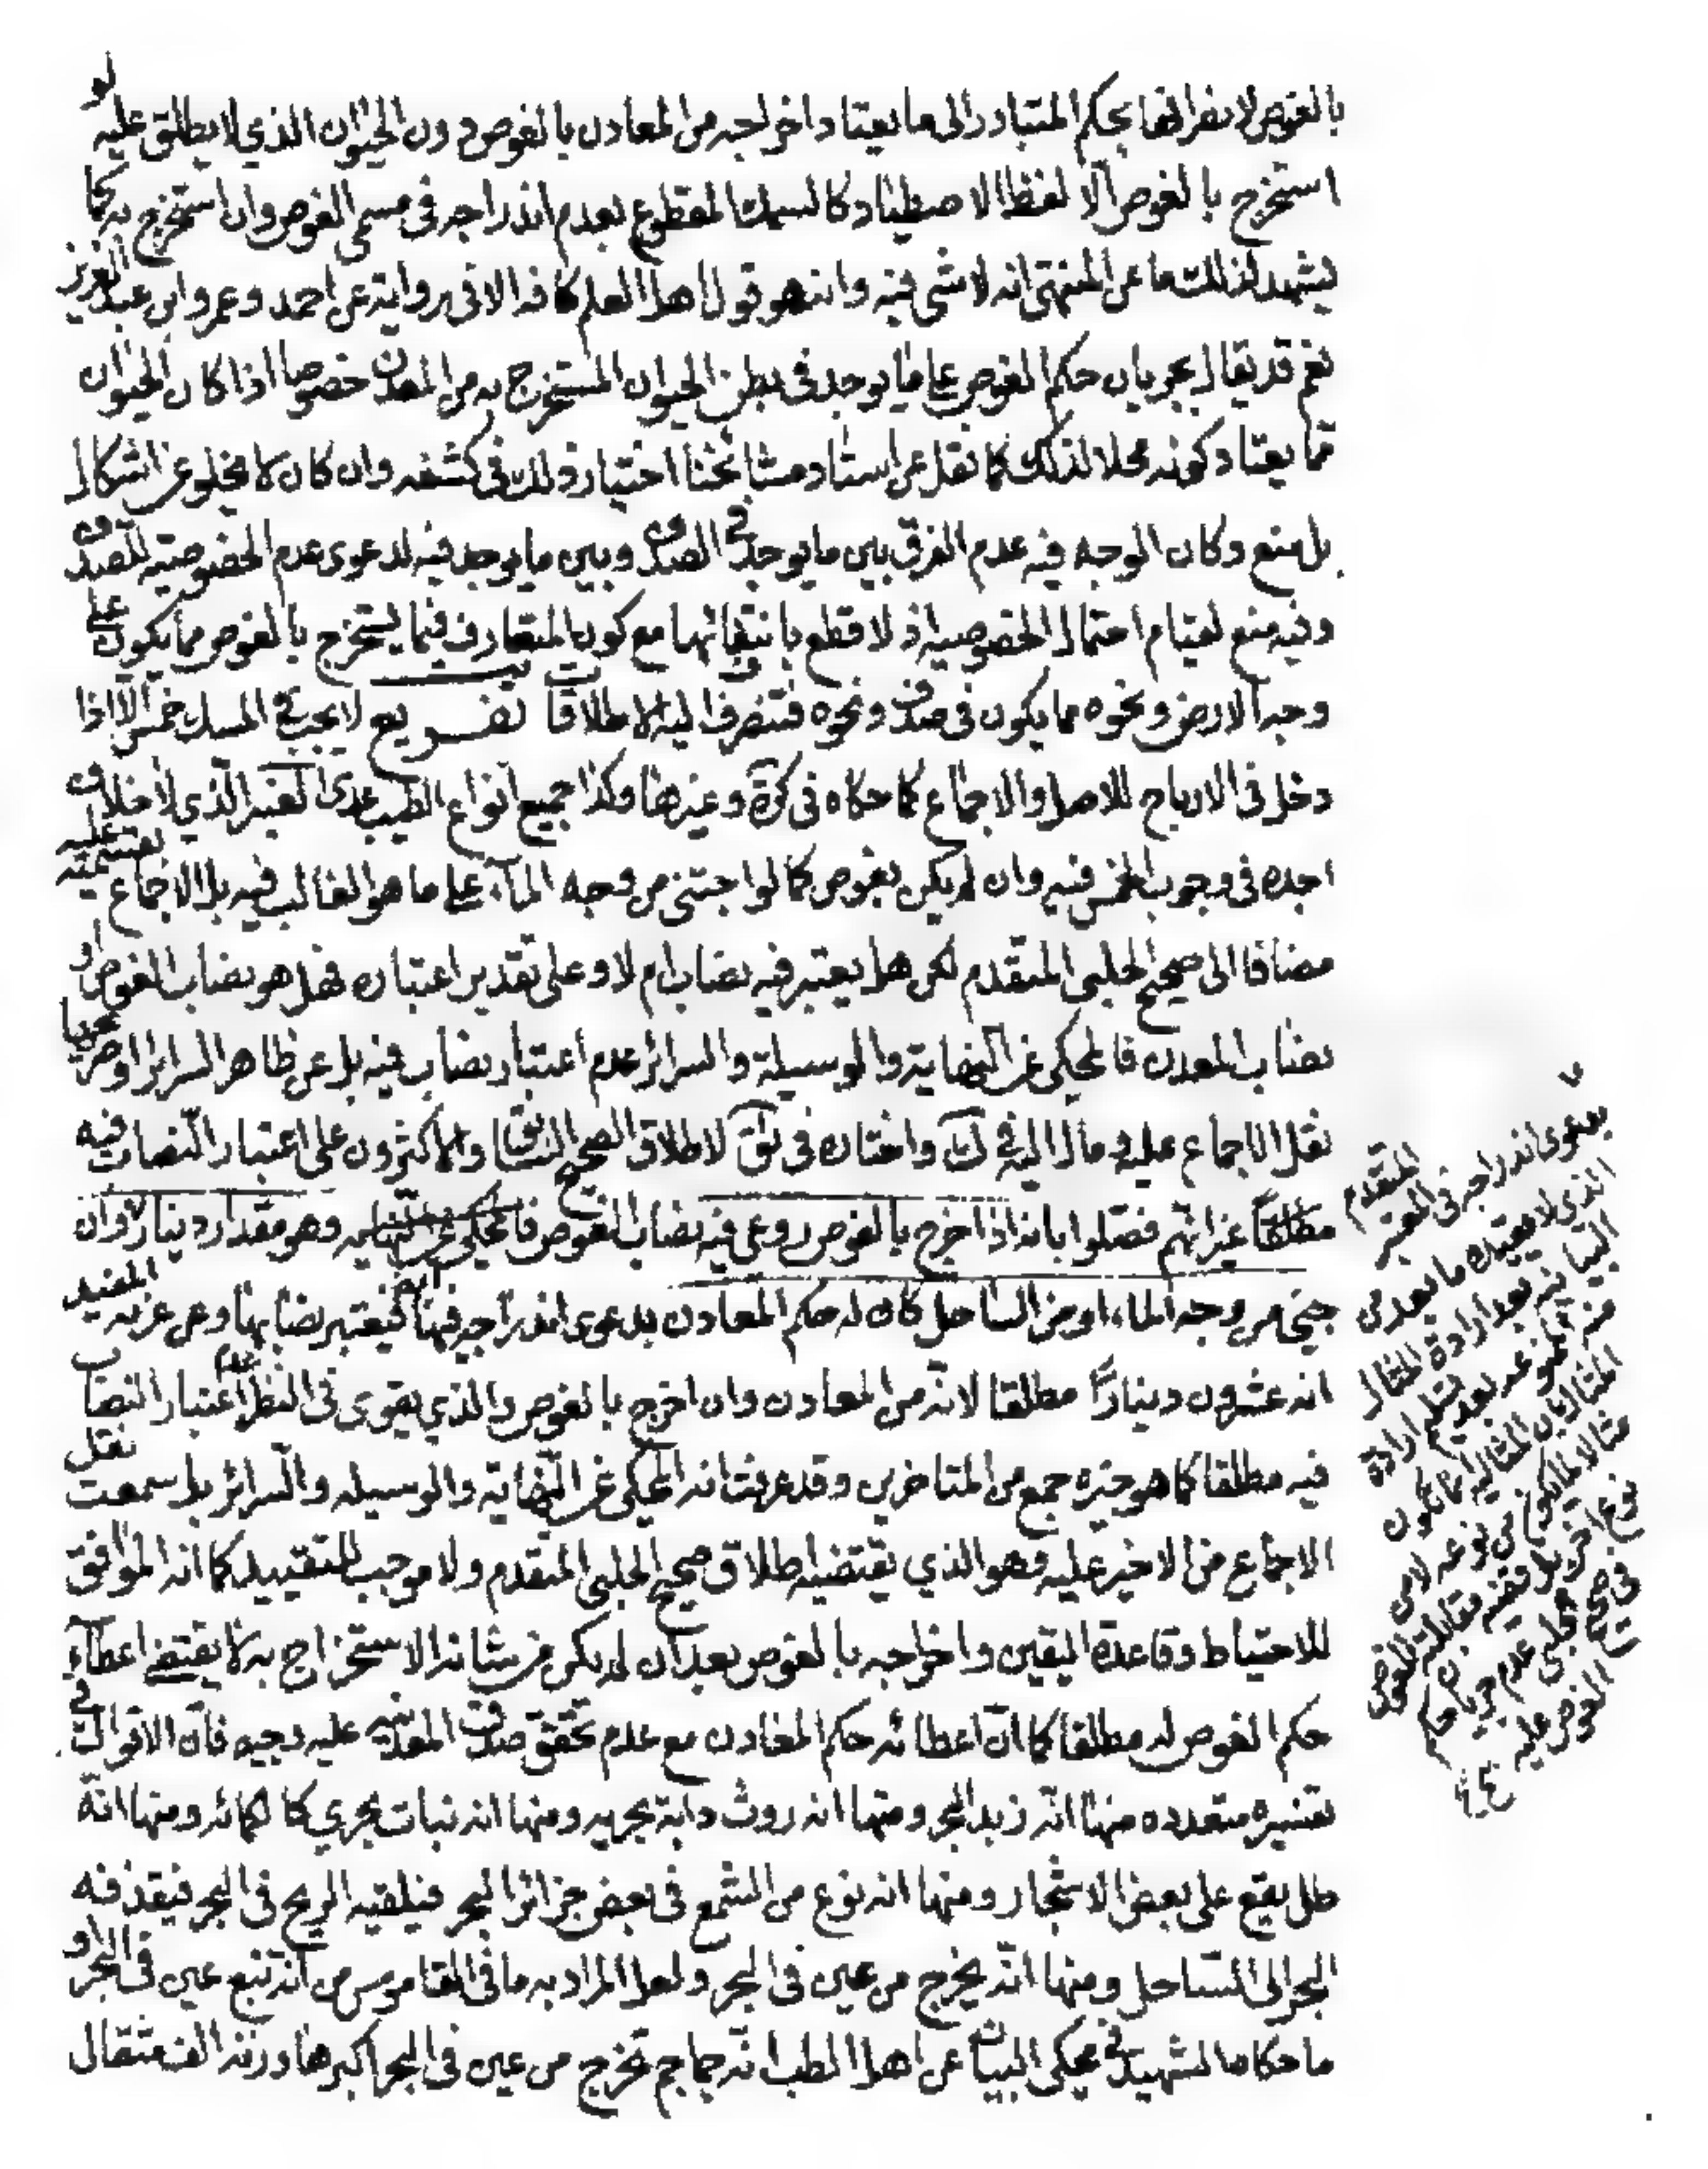 بالغوص لانصرافها بحكم المتبادر الى ما يعتاد اخراجه من المعادن بالغوص دون الحيوان الذي لا يطلق عليه لو
استخرج بالغوص الا لفظ الاصطياد كالسمك المقطوع بعدم اندراجه في مسمى الغوص وان استخرج به كما
يشهد لذلك ما عن المنتهى انه لا شي فيه وانه هو قول اهل العلم كافه الا في رواية عن احمد وعمر وابن عبد العزيز
نعم قد يقال بجريان حكم الغوص على ما يوجد في بطن الحيوان المستخرج به من المعدن خصوصا اذا كان الحيوان
مما يعتاد كونه محلا لذلك كما نقل عن استاد مشايخنا اختيار ذلك في كشفه وان كان لا يخلو عن اشكال
بل منع وكان الوجه فيه عدم الفرق بين ما يوجد في الصدف وبين ما يوجد فيه لدعوى عدم الخصوصية للصدف
وفيه منع لقيام احتمال الخصوصيه اذ لا قطع بانتفائها مع كون المتعارف فيما يستخرج بالغوص مما يكون على
وجه الارض ونحوه مما يكون في صدف ونحوه فتنصرف اليه الاطلاقات تفـــريع لا يجب في المسك خمس الا اذا
دخل في الارباح للاصل والاجماع كما حكاه في كرة وغيرها وكذا جميع انواع الطيب عدى العنبر الذي لا خلاف
اجده في وجوب الخمس فيه وان لم يكن بغوص كما لو اجتنى من وجه الماء على ما هو الغالب فيه بل الاجماع بقسميه عليه
مضافا الى صحيح الحلبي المتقدم لكن هل يعتبر فيه نصاب ام لا وعلى تقدير اعتباره فهل هو نصاب الغوص او
نصاب المعدن فالمحكي عن النهاية والوسيلة والسرائر عدم اعتبار نصاب فيه بل عن ظاهر السرائر او صريحها
نقل الاجماع عليه ومال اليه في ك واختاره في ئق لاطلاق الصحيح السابق والاكثرون على اعتبار النصاب فيه
مطلقاً غير انهم فصلوا بانه اذا اخرج بالغوص روعي فيه نصاب الغوص وهو مقدار دينار وان
جني من وجه الماء او من الساحل كان له حكم المعادن بدعوى اندراجه فيها فيعتبر نصابها وعن غرية المفيد
انه عشرون ديناراً مطلقا لانه من المعادن وان اخرج بالغوص والذي يقوى في النظر عدم اعتبار النصاب
فيه مطلقا كما هو خيره جمع من المتاخرين وقد عرفت انه المحكي عن النهاية والوسيله والسرائر بل سمعت نقل
الاجماع من الاخير عليه وهو الذي يقتضيه اطلاق صحيح الحلبي المتقدم ولا موجب للتقييد كما انه الموافق
للاحتياط وقاعدة اليقين واخراجه بالغوص بعد ان لم يكن من شانه الاستخراج به لا يقتضي اعطاء
حكم الغوص له مطلقا كما ان اعطائه حكم المعادن مع عدم تحقق صدق المعدنيه عليه وجيه فان الاقوال في
تفسيره متعدده منها انه زبد البحر ومنها انه روث دابة بحريه ومنها انه نبات بحري كالكمائه ومنها انه
طل يقع على بعض الاشجار ومنها انه نوع من الشمع في بعض جزائر البحر فيلقيه الريح في البحر فيقذفه
البحر الى الساحل ومنها انه يخرج من عين في البحر ولعل المراد به ما في القاموس من انه نبع عين في البحر او
ما حكاه الشهيد في محكي البيان عن اهل الطب انه جماجم تخرج من عين في البحر اكبرها وزنه الف مثقال
بدعوى اندراجه في العنبر المتقدم
الذي لا يقيده ما بعد من
البيانيه بعد ارادة المثال
منه
في صحيح الحلبي عدم جريان حكم
الغوص عليه